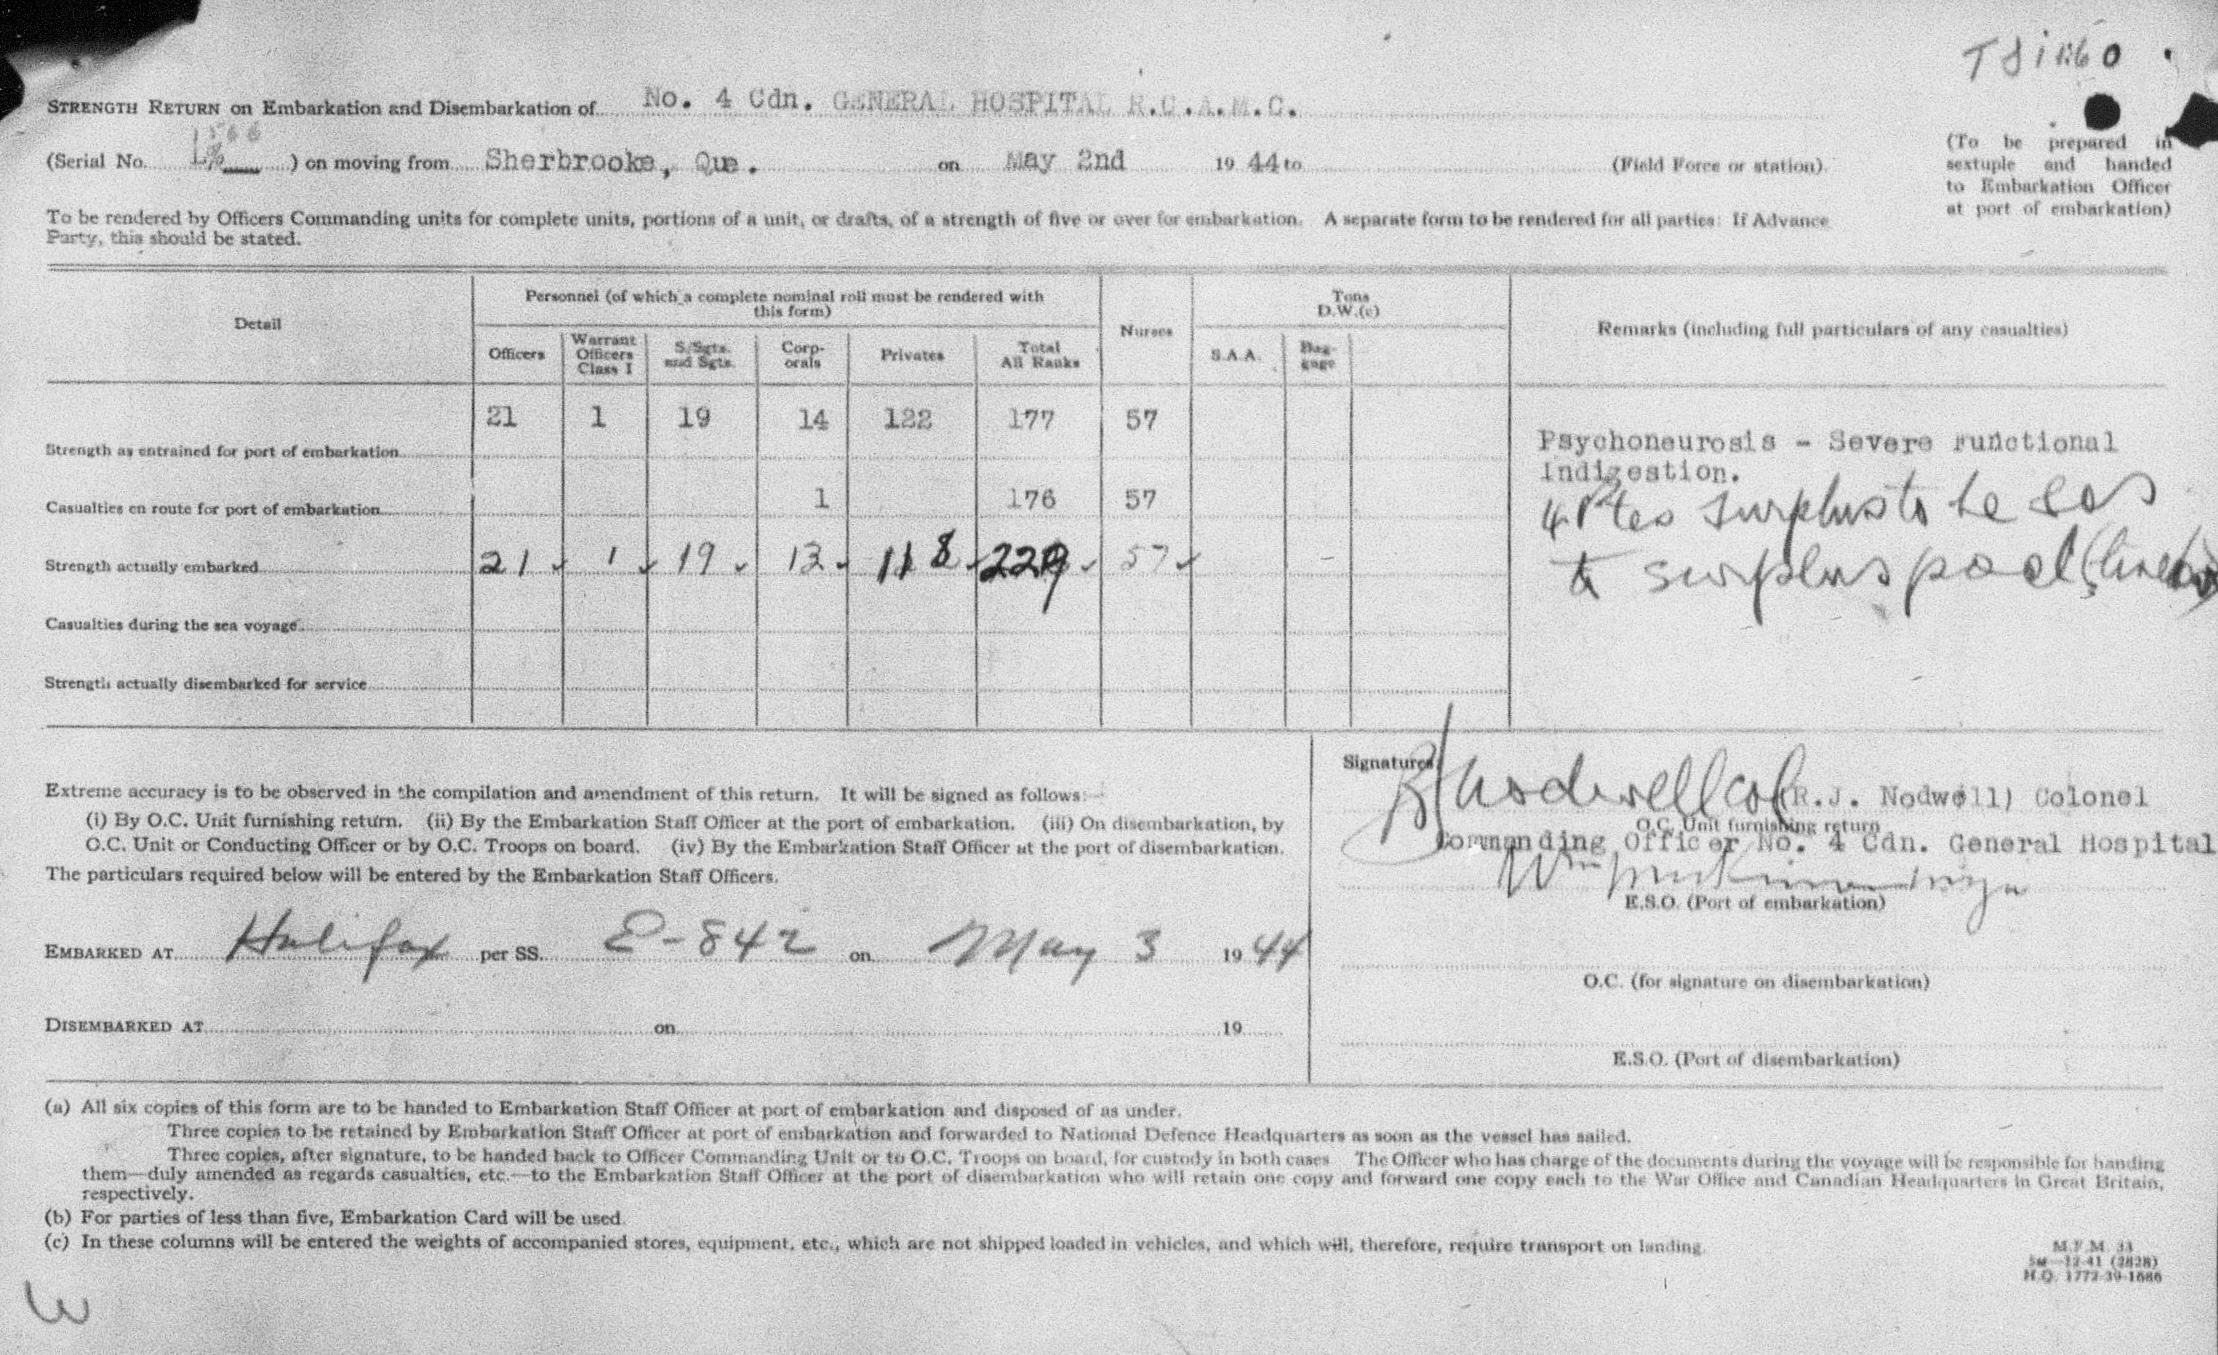 STRENGTH RETURN on Embarkation and Disembarkation of No. 4 Cdn. GENERAL HOSPITAL R.C.A.M.C.
(Serial No. ) on moving from Sherbrooke, Que. on May 2nd 19 44 to (Field Force or station)
(To be prepared in
sextuple and handed
to Embarkation Officer
at port of embarkation)
To be rendered by Officers Commanding units for complete units, portions of a unit, or drafts, of a strength of five or over for embarkation. A separate form to be rendered for all parties: If Advance
Party, this should be stated.
Detail
Personnel (of which a complete nominal roll must be rendered with
this form)
Officers
Warrant
Officers
Class I
S/Sgts.
and Sgts.
Corp-
orals
Privates
Total
All Ranks
Nurses
Tons
D.W.(c)
S.A.A.
Bag-
gage
Remarks (including full particulars of any casualties)
Strength as entrained for port of embarkation 21 1 19 14 122 177 57
Casualties en route for port of embarkation 1 176 57
Strength actually embarked 21 1 19 13 118 229 57 -
Casualties during the sea voyage
Strength actually disembarked for service
Psychoneurosis - Severe Functional
Indigestion.
4 Ptes surplus to be SOS
to surplus pool
Extreme accuracy is to be observed in the compilation and amendment of this return. It will be signed as follows:—
(i) By O.C. Unit furnishing return. (ii) By the Embarkation Staff Officer at the port of embarkation. (iii) On disembarkation, by
O.C. Unit or Conducting Officer or by O.C. Troops on board. (iv) By the Embarkation Staff Officer at the port of disembarkation.
The particulars required below will be entered by the Embarkation Staff Officers.
EMBARKED AT Halifax per SS. E-842 on May 3 19 44
DISEMBARKED AT on 19
Signatures
Nodwell Col (R.J. Nodwell) Colonel
O.C. Unit furnishing return
Commanding Officer No. 4 Cdn. General Hospital
E.S.O. (Port of embarkation)
O.C. (for signature on disembarkation)
E.S.O. (Port of disembarkation)
(a) All six copies of this form are to be handed to Embarkation Staff Officer at port of embarkation and disposed of as under.
Three copies to be retained by Embarkation Staff Officer at port of embarkation and forwarded to National Defence Headquarters as soon as the vessel has sailed.
Three copies, after signature, to be handed back to Officer Commanding Unit or to O.C. Troops on board, for custody in both cases The Officer who has charge of the documents during the voyage will be responsible for handing
them—duly amended as regards casualties, etc.—to the Embarkation Staff Officer at the port of disembarkation who will retain one copy and forward one copy each to the War Office and Canadian Headquarters in Great Britain,
respectively.
(b) For parties of less than five, Embarkation Card will be used.
(c) In these columns will be entered the weights of accompanied stores, equipment, etc., which are not shipped loaded in vehicles, and which will, therefore, require transport on landing.
M.F.M. 33
5M—12-41 (2828)
H.Q. 1772-39-1686